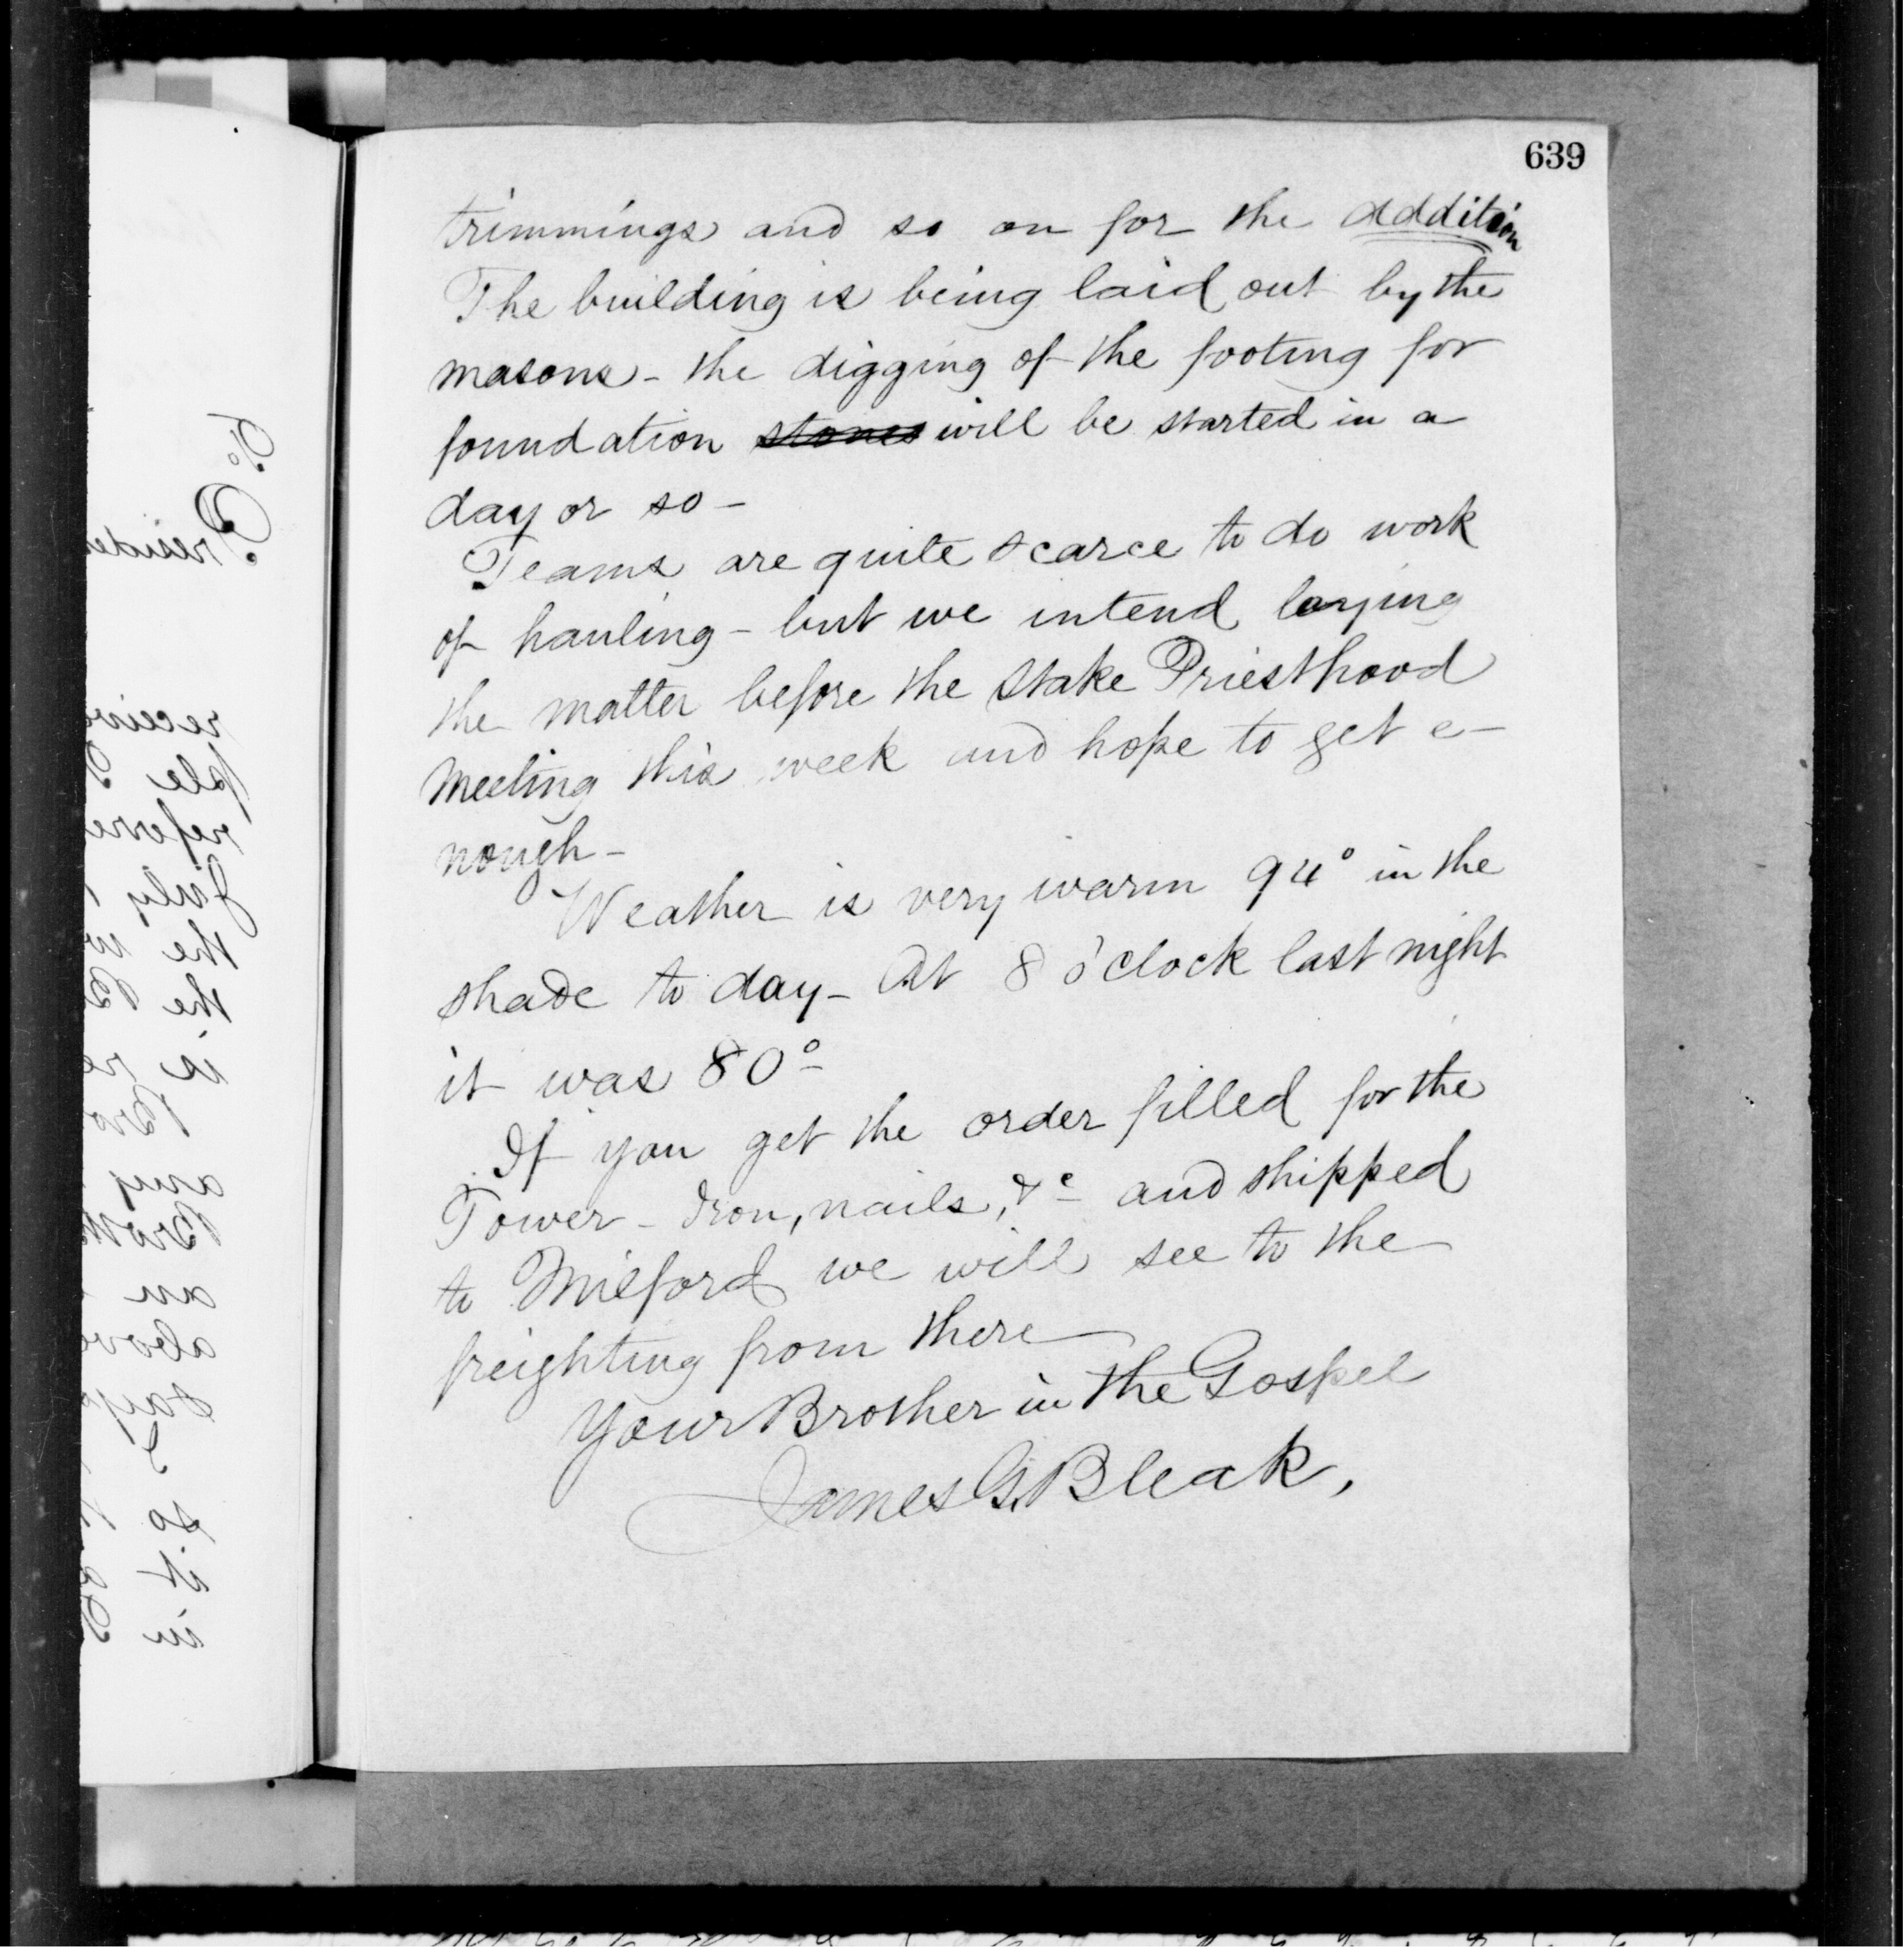 639
trimmings and so on for the addition
The building is being laid out by the
masons - the digging of the footing for
foundation stones will be started in a
day or so -
Teams are quite scarce to do work
of hauling - but we intend laying
the matter before the Stake Priesthood
Meeting this week and hope to get e-
nough -
Weather is very warm 94° in the
shade to day - At 8 o'clock last night
it was 80°
If you get the order filled for the
Tower - Iron, nails, &c and shipped
to Milford we will see to the
freighting from there
Your Brother in the Gospel
James G. Bleak,